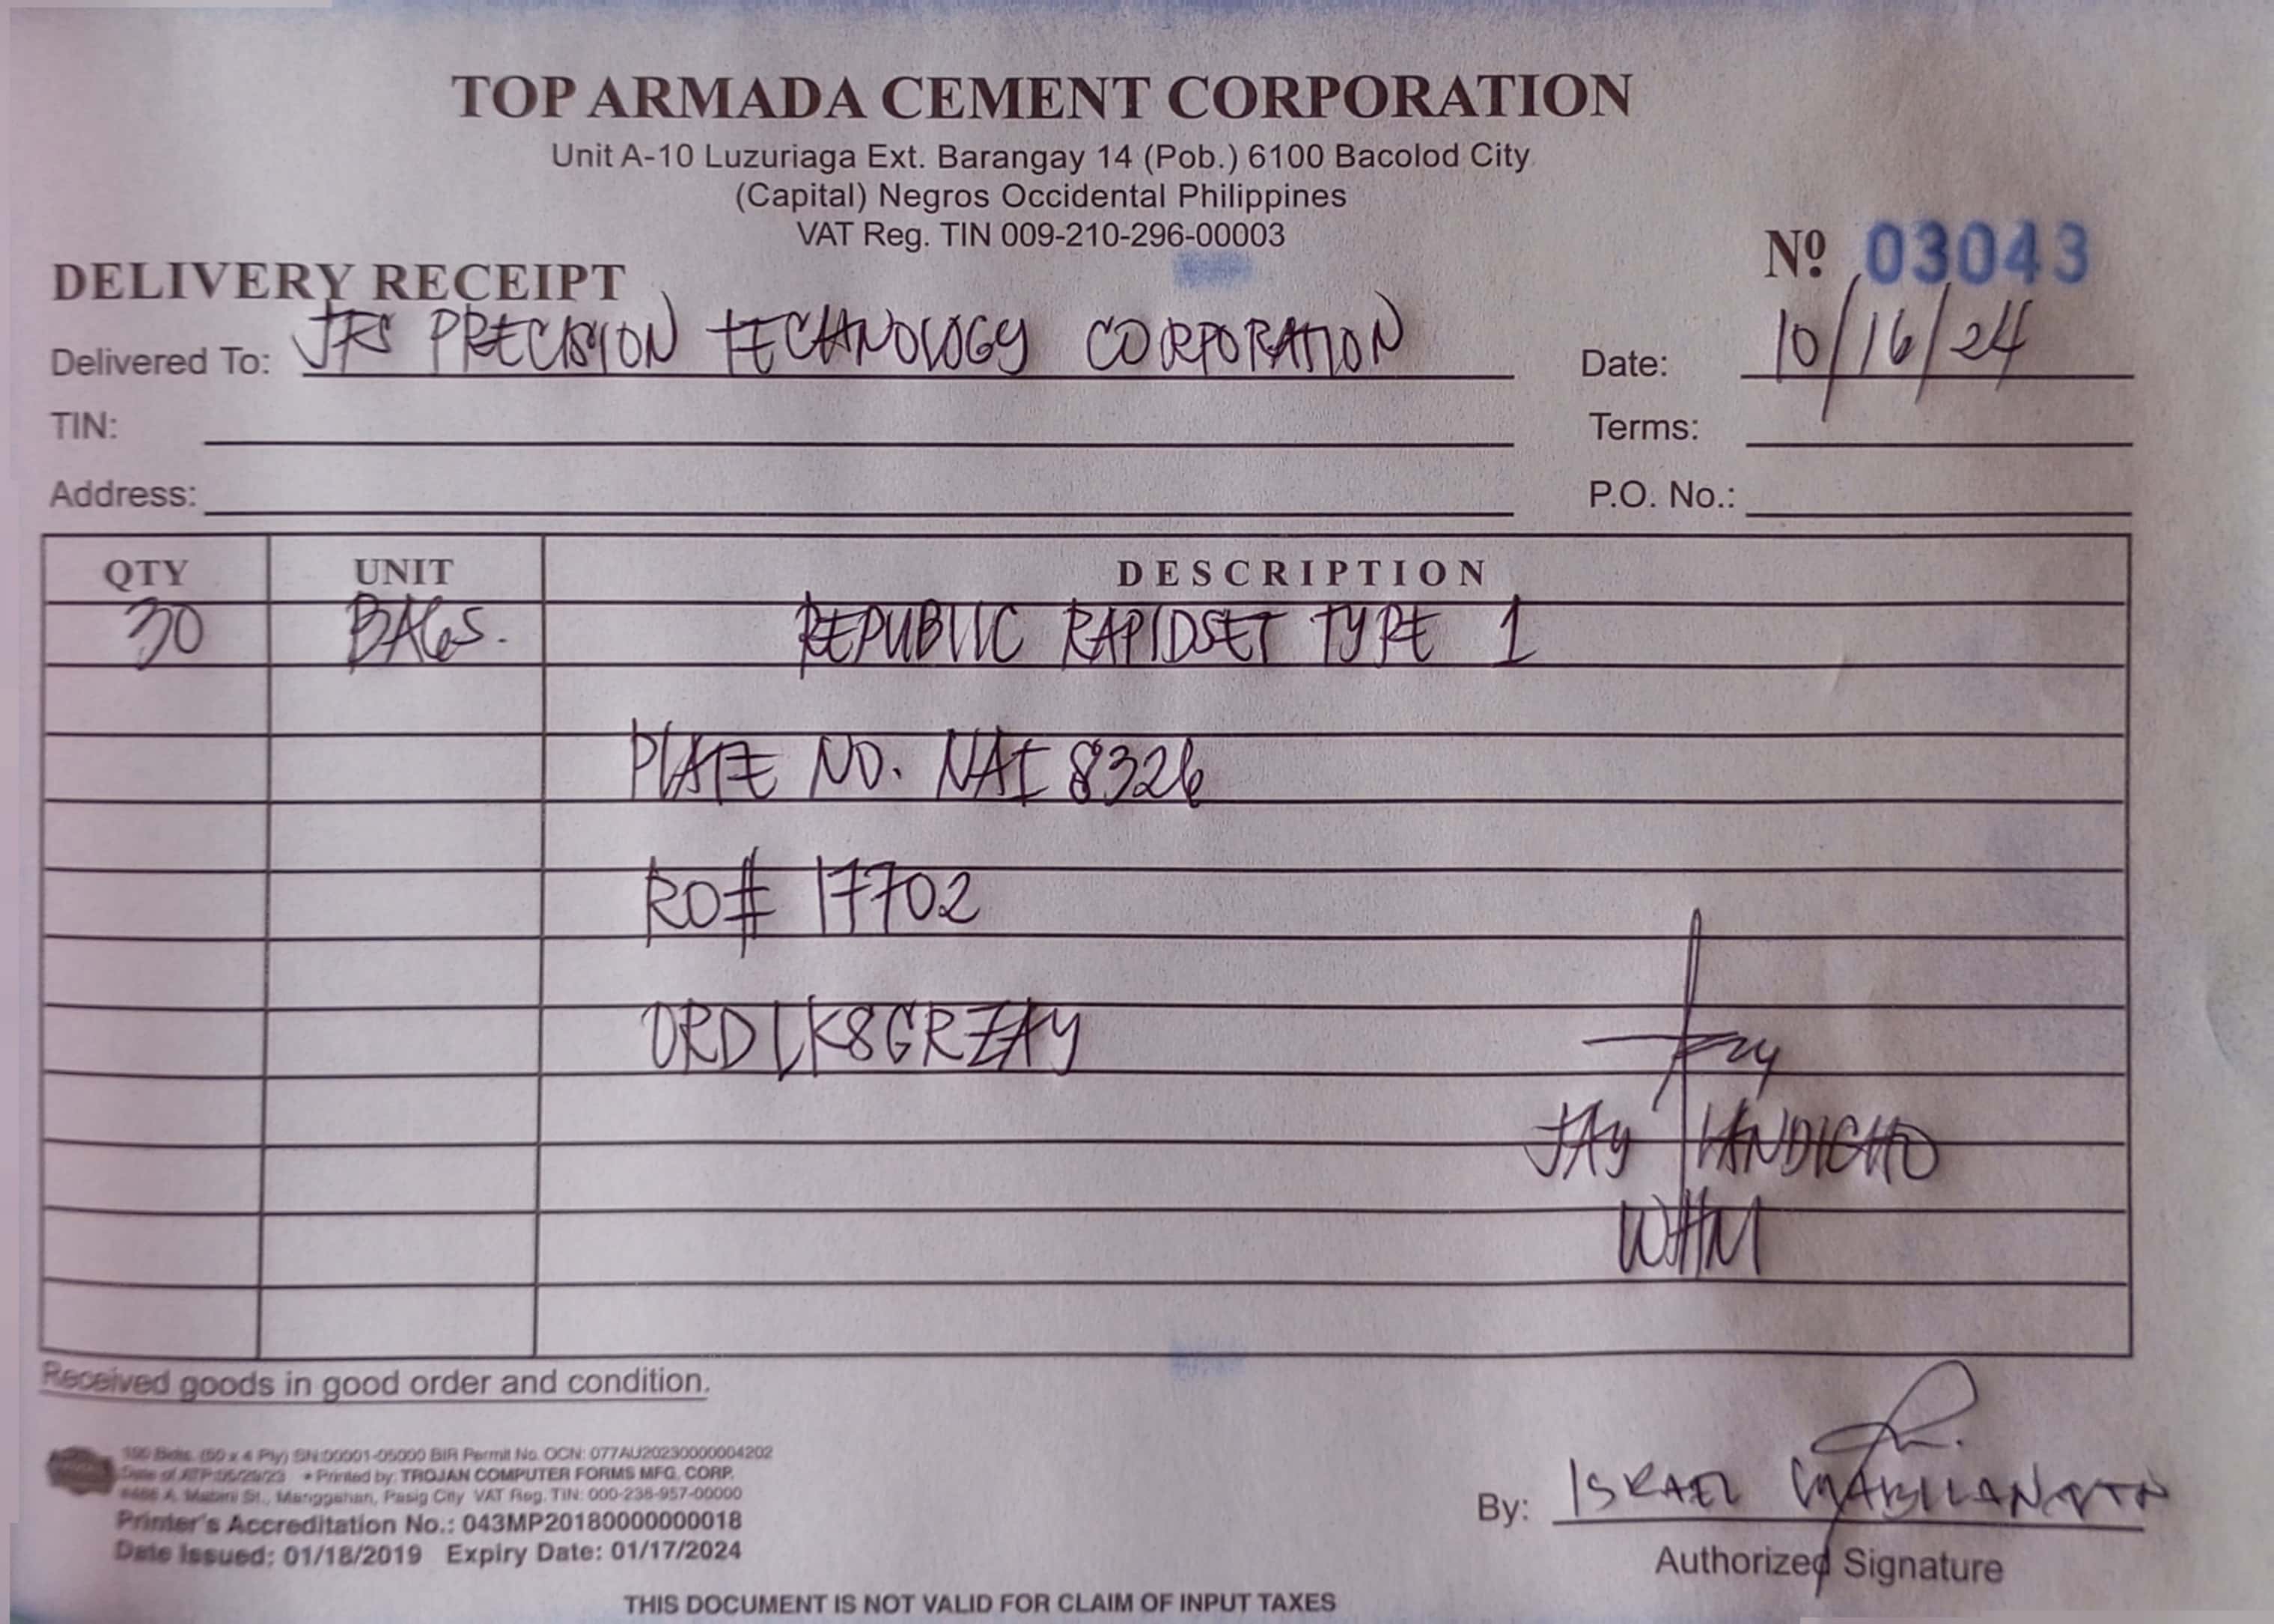 TOP ARMADA CEMENT CORPORATION
Unit A-10 Luzuriaga Ext. Barangay 14 (Pob.) 6100 Bacolod City
(Capital) Negros Occidental Philippines
VAT Reg. TIN 009-210-296-00003
Nº 03043
DELIVERY RECEIPT
Delivered To: JRS PRECISION TECHNOLOGY CORPORATION Date: 10/16/24
TIN: Terms:
Address: P.O. No.:
QTY UNIT DESCRIPTION
30 BAGS. REPUBLIC RAPIDSET TYPE 1
PLATE NO. NAI 8326
RO# 17702
ORDLK8GRZAY
JAY LANDICHO
WHM
Received goods in good order and condition.
100 Bklts. (50 x 4 Ply) SN:00001-05000 BIR Permit No. OCN: 077AU20230000004202
Date of ATP:05/29/23 • Printed by: TROJAN COMPUTER FORMS MFG. CORP.
A. Mabini St., Manggahan, Pasig City VAT Reg. TIN: 000-238-957-00000
Printer's Accreditation No.: 043MP20180000000018
Date Issued: 01/18/2019 Expiry Date: 01/17/2024
By: ISRAEL
Authorized Signature
THIS DOCUMENT IS NOT VALID FOR CLAIM OF INPUT TAXES